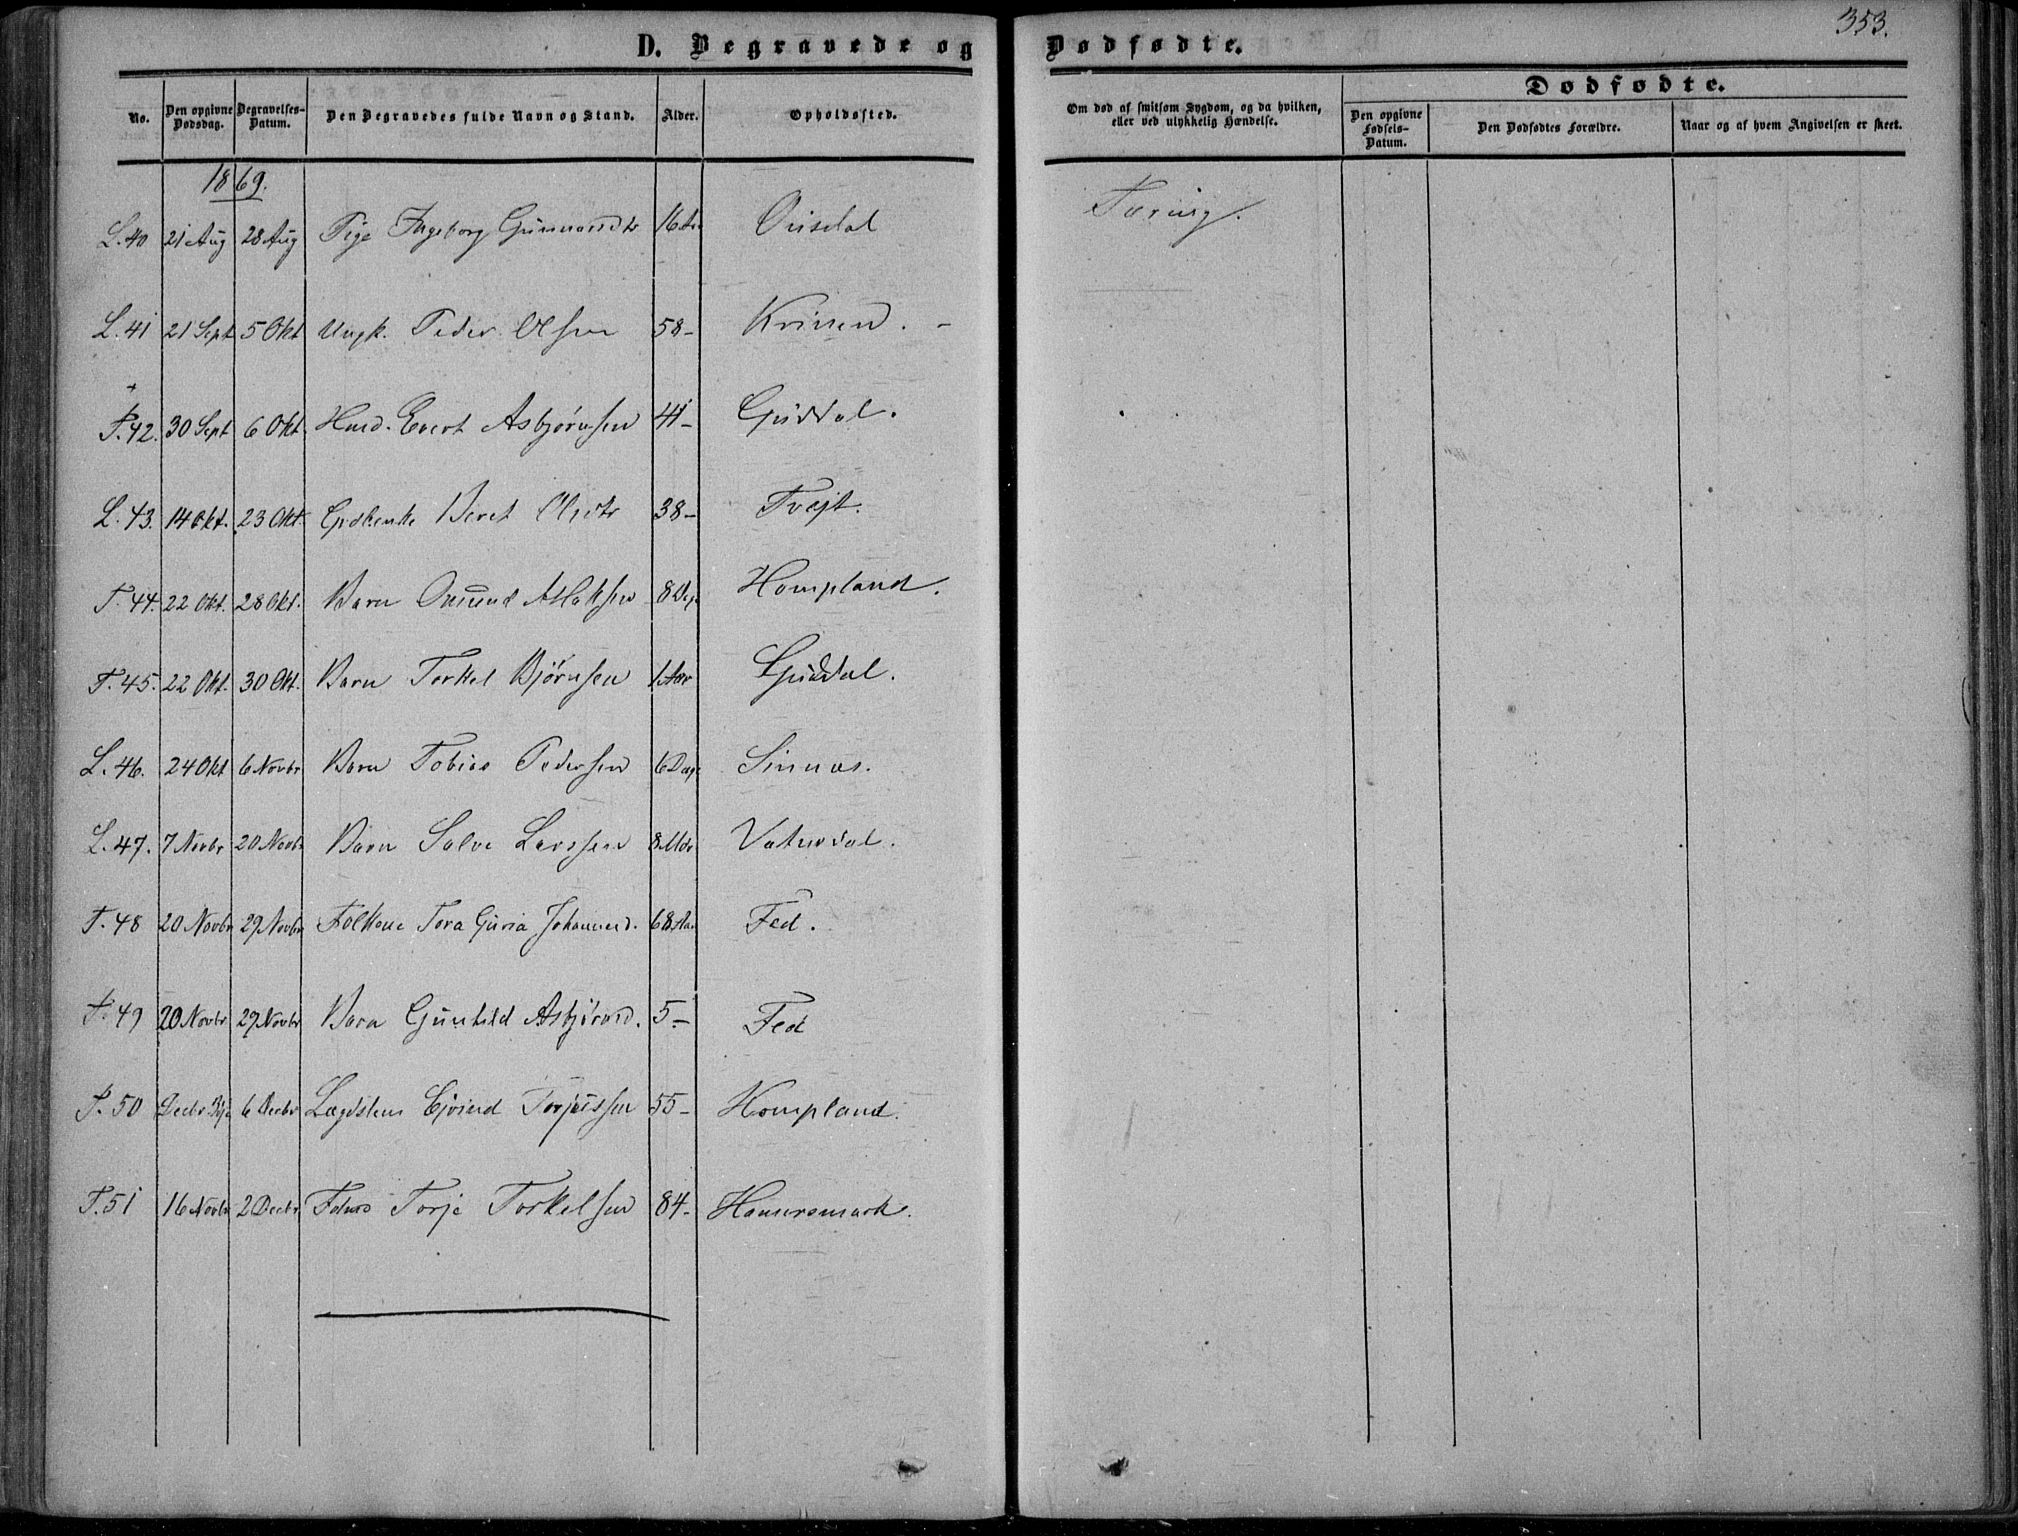 353.
D. Begravede og Dødfødte.
No. Den opgivne Dødsdag. Begravelses-Datum. Den Begravedes fulde Navn og Stand. Alder. Opholdssted. Om død af smitsom Sygdom, og da hvilken, eller ved ulykkelig Hændelse. Dødfødte. Den opgivne Fødsels-Datum. Den Dødfødtes Forældre. Naar og af hvem Angivelsen er skeet.
1869.
L. 40 21 Aug 28 Aug Pige Ingeborg Gunvarsdtr 16 Ousdal Tæring.
L. 41 21 Sept 5 Okt Ungk. Peder Olsen 58 - Krinen. -
F. 42. 30 Sept 6 Okt. Husd. Evert Asbjørnsen 41 - Guddal.
L. 43. 14 Okt. 23 Okt. Beret Olsdtr 38 - Tvejt.
F. 44. 22 Okt. 28 Okt. Barn Omund Aslaksen 8 Dage Hompland.
F. 45. 22 Okt. 30 Okt. Barn Torkel Bjørnsen 1 Aar Guddal.
L. 46. 24 Okt 6 Novbr Barn Tobias Pedersen 6 Dage Sinnæs.
L. 47. 7 Novbr 20 Novbr Barn Salve Larssen 8 Mdr Vatnedal.
F. 48 20 Novbr 29 Novbr Folkone Tora Guria Johannesd. 68 Aar Fed.
F. 49 20 Novbr 29 Novbr Barn Gunhild Asbjørnsd. 5 - Fed
F. 50 Decbr 6 Decbr Lægdslem Ejvind Torjussen 55 - Hompland.
F. 51 16 Novbr 2 Decbr Torje Torkelsen 84 - Hamremark.